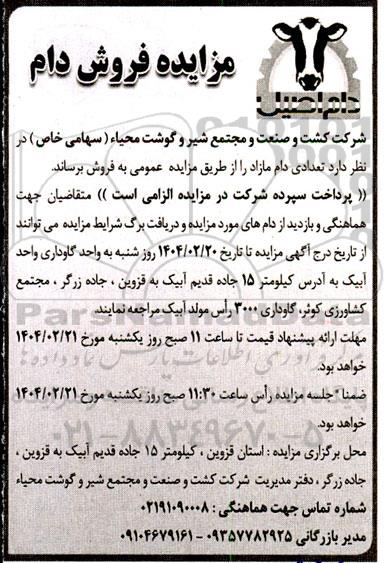 مزایده فروش دام
دام اصیل
شرکت کشت و صنعت و مجتمع شیر و گوشت محیاء ( سهامی خاص ) در
نظر دارد تعدادی دام مازاد را از طریق مزایده عمومی به فروش برساند.
(( پرداخت سپرده شرکت در مزایده الزامی است )) متقاضیان جهت
هماهنگی و بازدید از دام های مورد مزایده و دریافت برگ شرایط مزایده می توانند
از تاریخ درج آگهی مزایده تا تاریخ ۱۴۰۴/۰۲/۲۰ روز شنبه به واحد گاوداری واحد
آبیک به آدرس کیلومتر ۱۵ جاده قدیم آبیک به قزوین ، جاده زرگر ، مجتمع
کشاورزی کوثر، گاوداری ۳۰۰۰ رأس مولد آبیک مراجعه نمایند.
مهلت ارائه پیشنهاد قیمت تا ساعت ۱۱ صبح روز یکشنبه مورخ ۱۴۰۴/۰۲/۲۱
خواهد بود.
ضمنا" جلسه مزایده رأس ساعت ۱۱:۳۰ صبح روز یکشنبه مورخ ۱۴۰۴/۰۲/۲۱
خواهد بود.
محل برگزاری مزایده : استان قزوین ، کیلومتر ۱۵ جاده قدیم آبیک به قزوین ،
جاده زرگر ، دفتر مدیریت شرکت کشت و صنعت و مجتمع شیر و گوشت محیاء
شماره تماس جهت هماهنگی : ۰۲۱۹۱۰۹۰۰۰۸
مدیر بازرگانی ۰۹۳۵۷۷۸۲۹۲۵ - ۰۹۱۰۴۶۷۹۱۶۱
ParsNamadData
۰۲۱-۸۸۳۴۹۶۷۰-۵